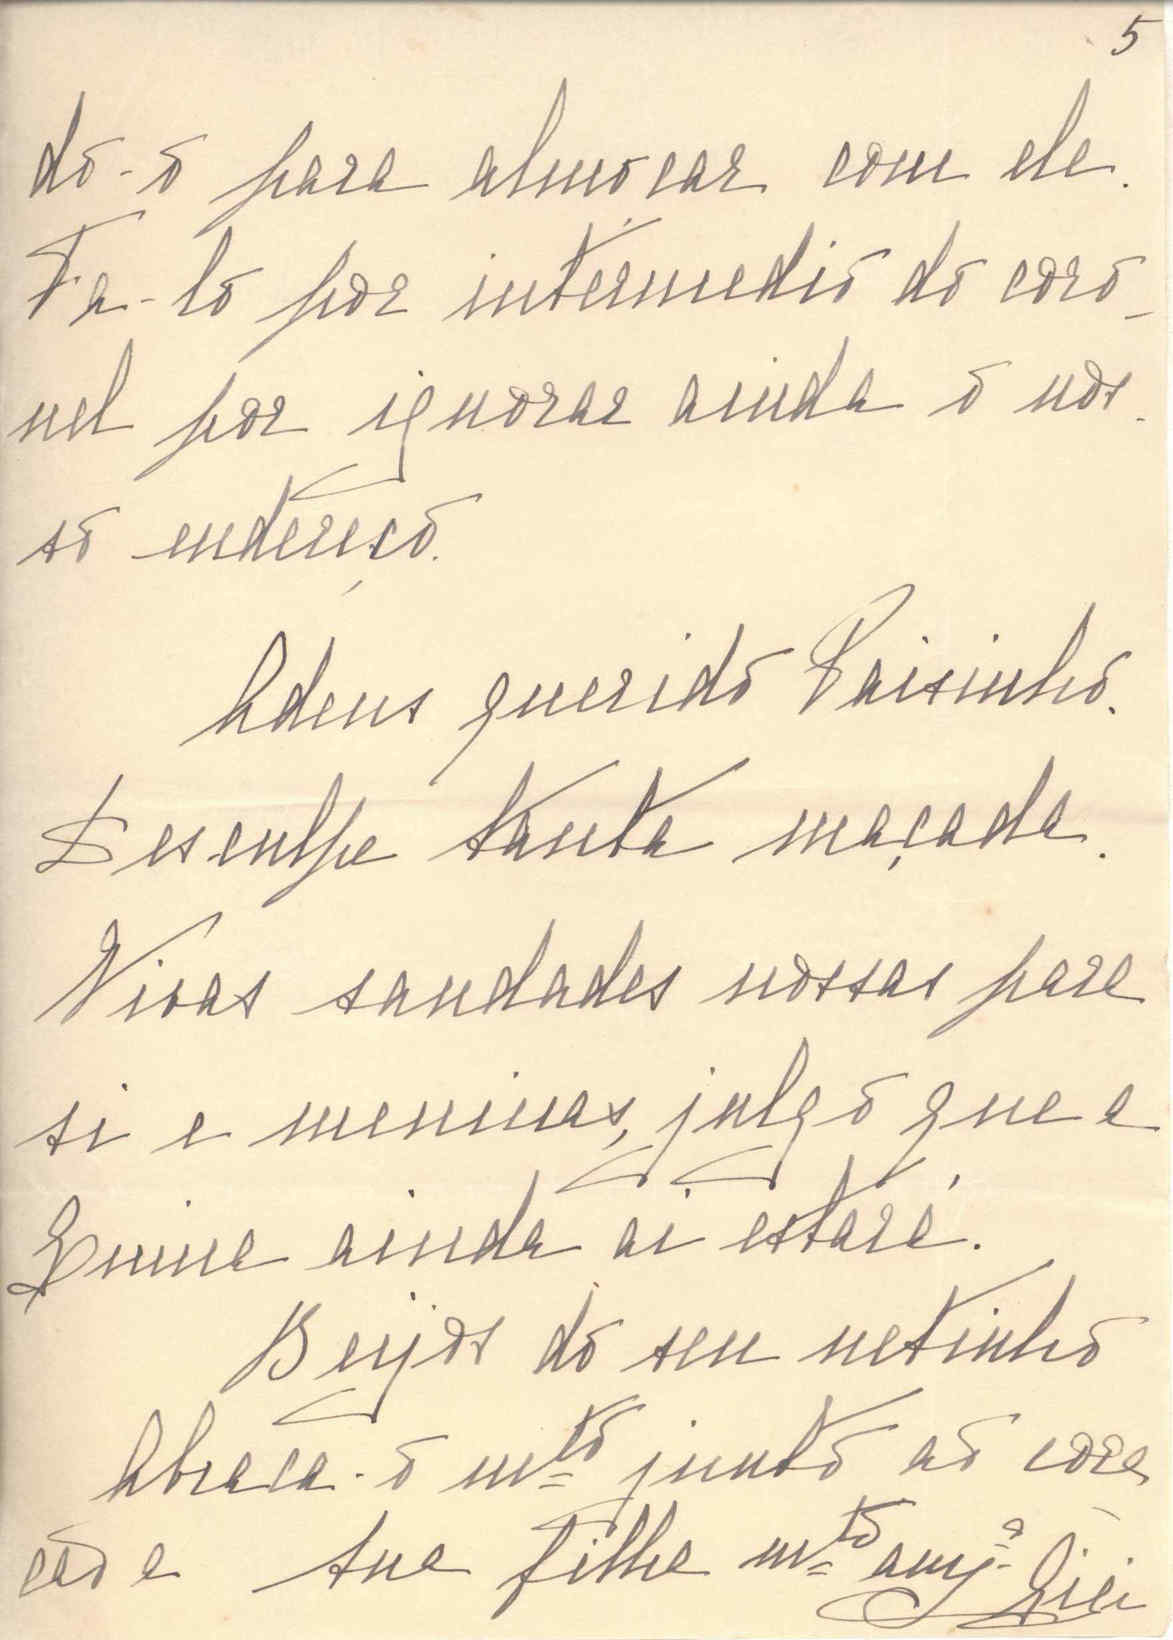 5
do-o para almoçar com ele.
Fa-lo por intermedio do coro-
nel por ignorar ainda o nos-
so endereço.
Adeus querido Paisinho.
Desculpe tanta maçada.
Vivas saudades nossas para
si e meninas, julgo que a
Emma ainda ai estará.
Beijos do seu netinho
Abraça-o mto junto ao cora-
ção a sua filha mto amga